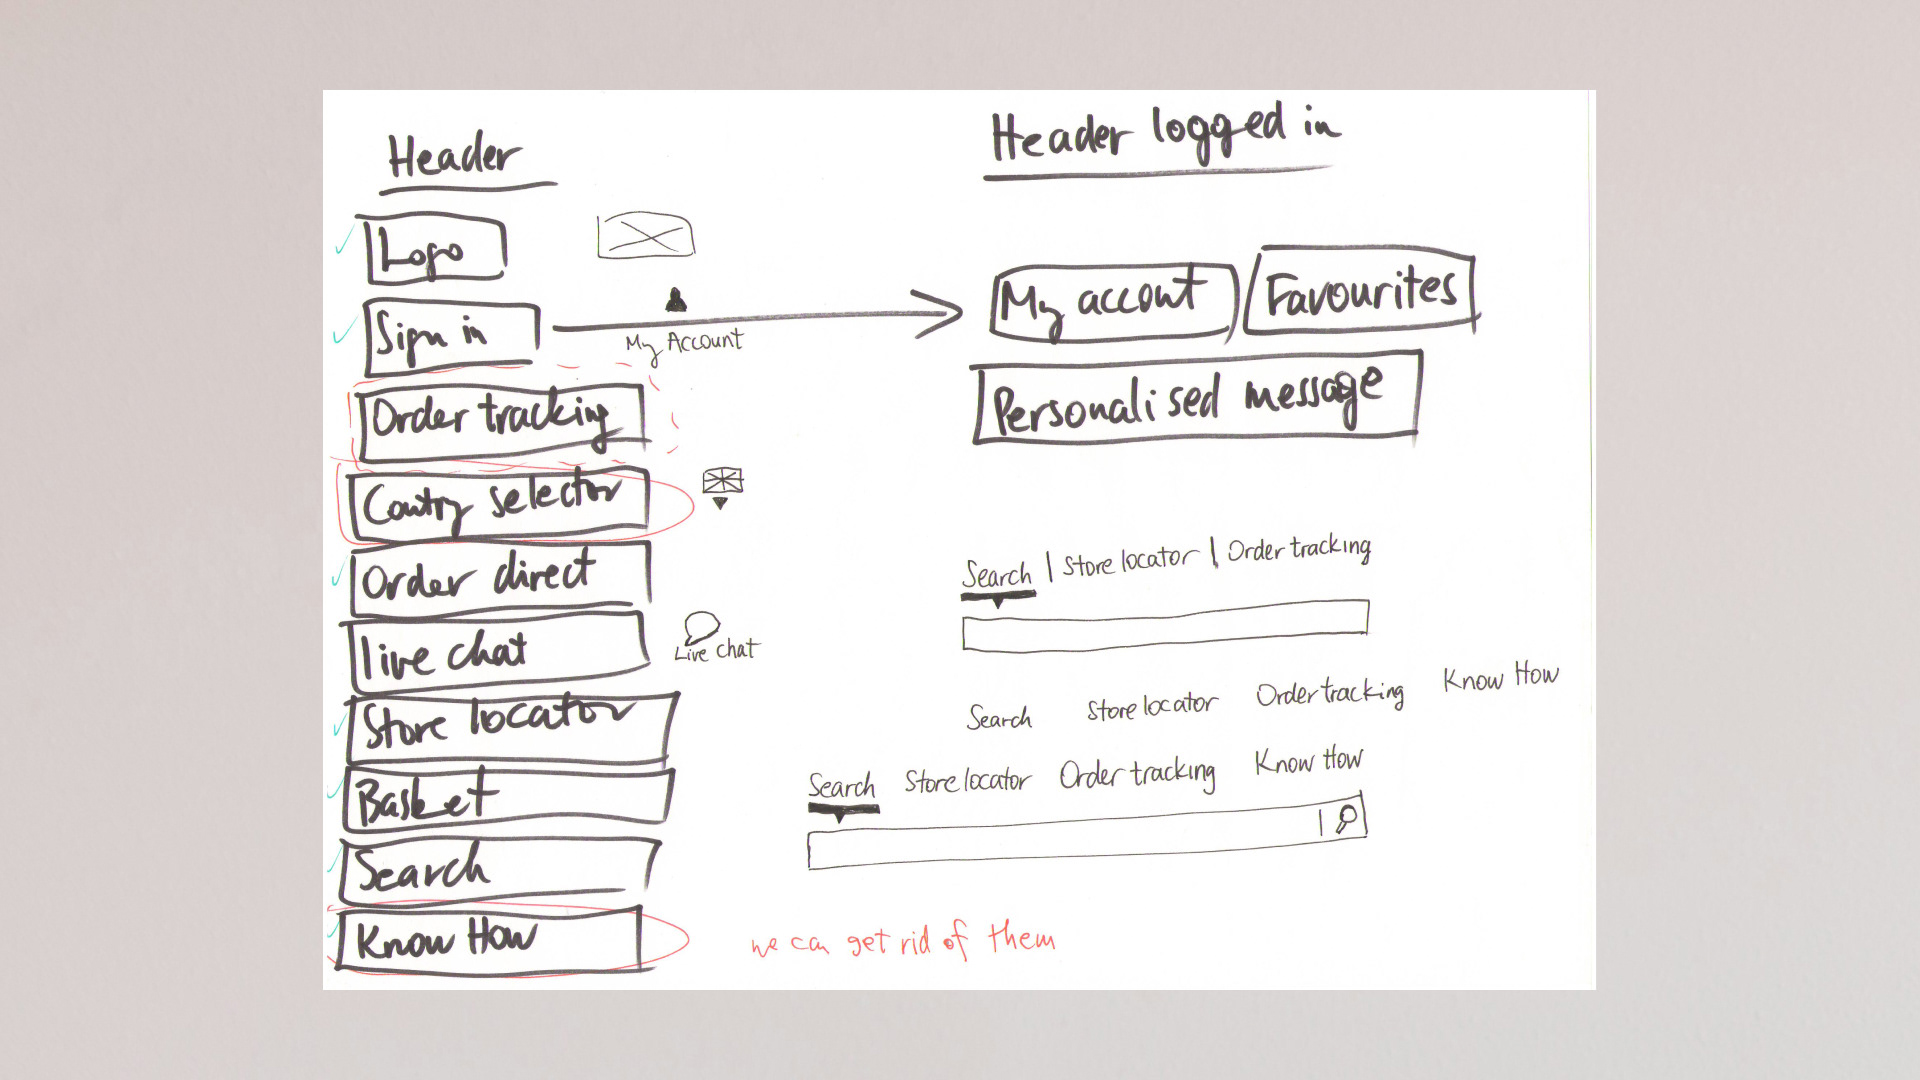 Header
Logo
Sign in
My Account
Order tracking
Country selector
Order direct
live chat
Live chat
Store locator
Basket
Search
Know How
we can get rid of them
Header logged in
My accont
Favourites
Personalised message
Search | Store locator | Order tracking
Search Store locator Order tracking Know How
Search Store locator Order tracking Know How